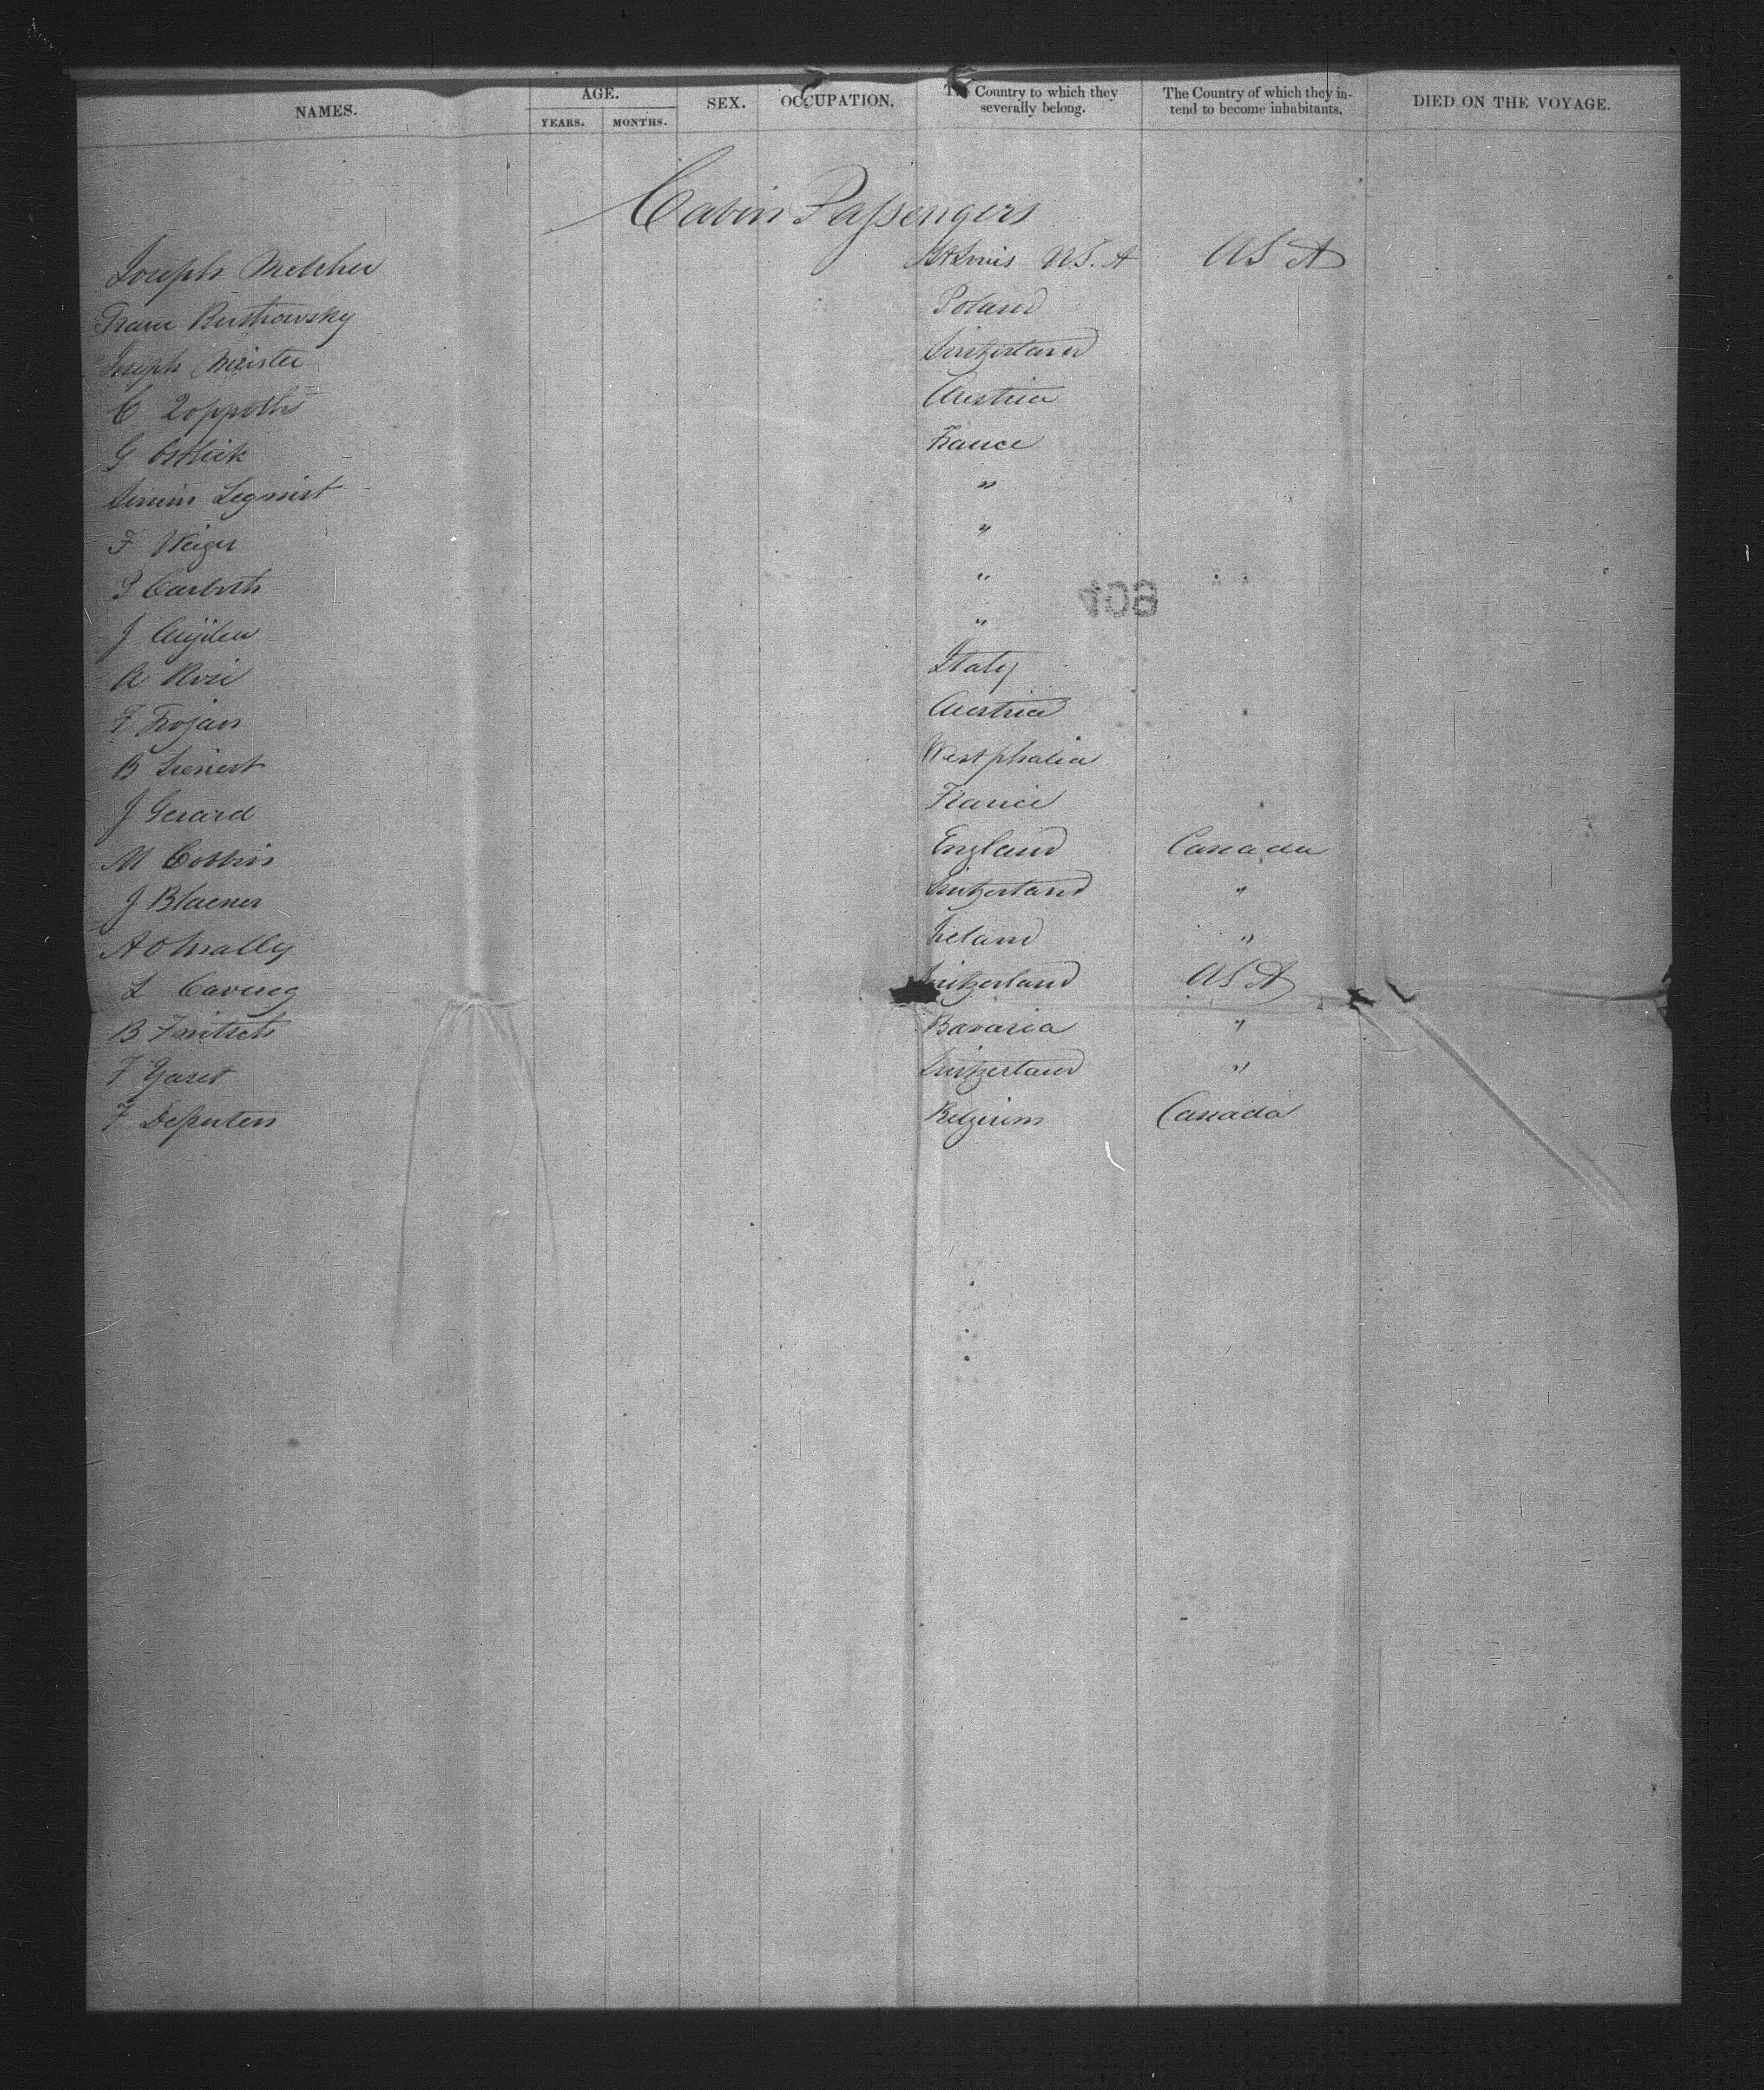 NAMES. AGE. YEARS. MONTHS. SEX. OCCUPATION. The Country to which they severally belong. The Country of which they intend to become inhabitants. DIED ON THE VOYAGE.
Cabin Passengers
Joseph Melcher St Louis U.S.A U S A
Franz Poland
Joseph Meister Switzerland
C Zoppoth Austria
G France
Simin Legnist "
F Weiger "
P "
J "
A Rosi Italy
F Trojan Austria
B Lienert Westphalia
J Gerard France
M Cobbin England Canada
J Blaener Switzerland "
A O Mally Ireland "
L Cavereg Switzerland U S A
B Bavaria "
F Garet Switzerland "
F Deputen Belgium Canada
408